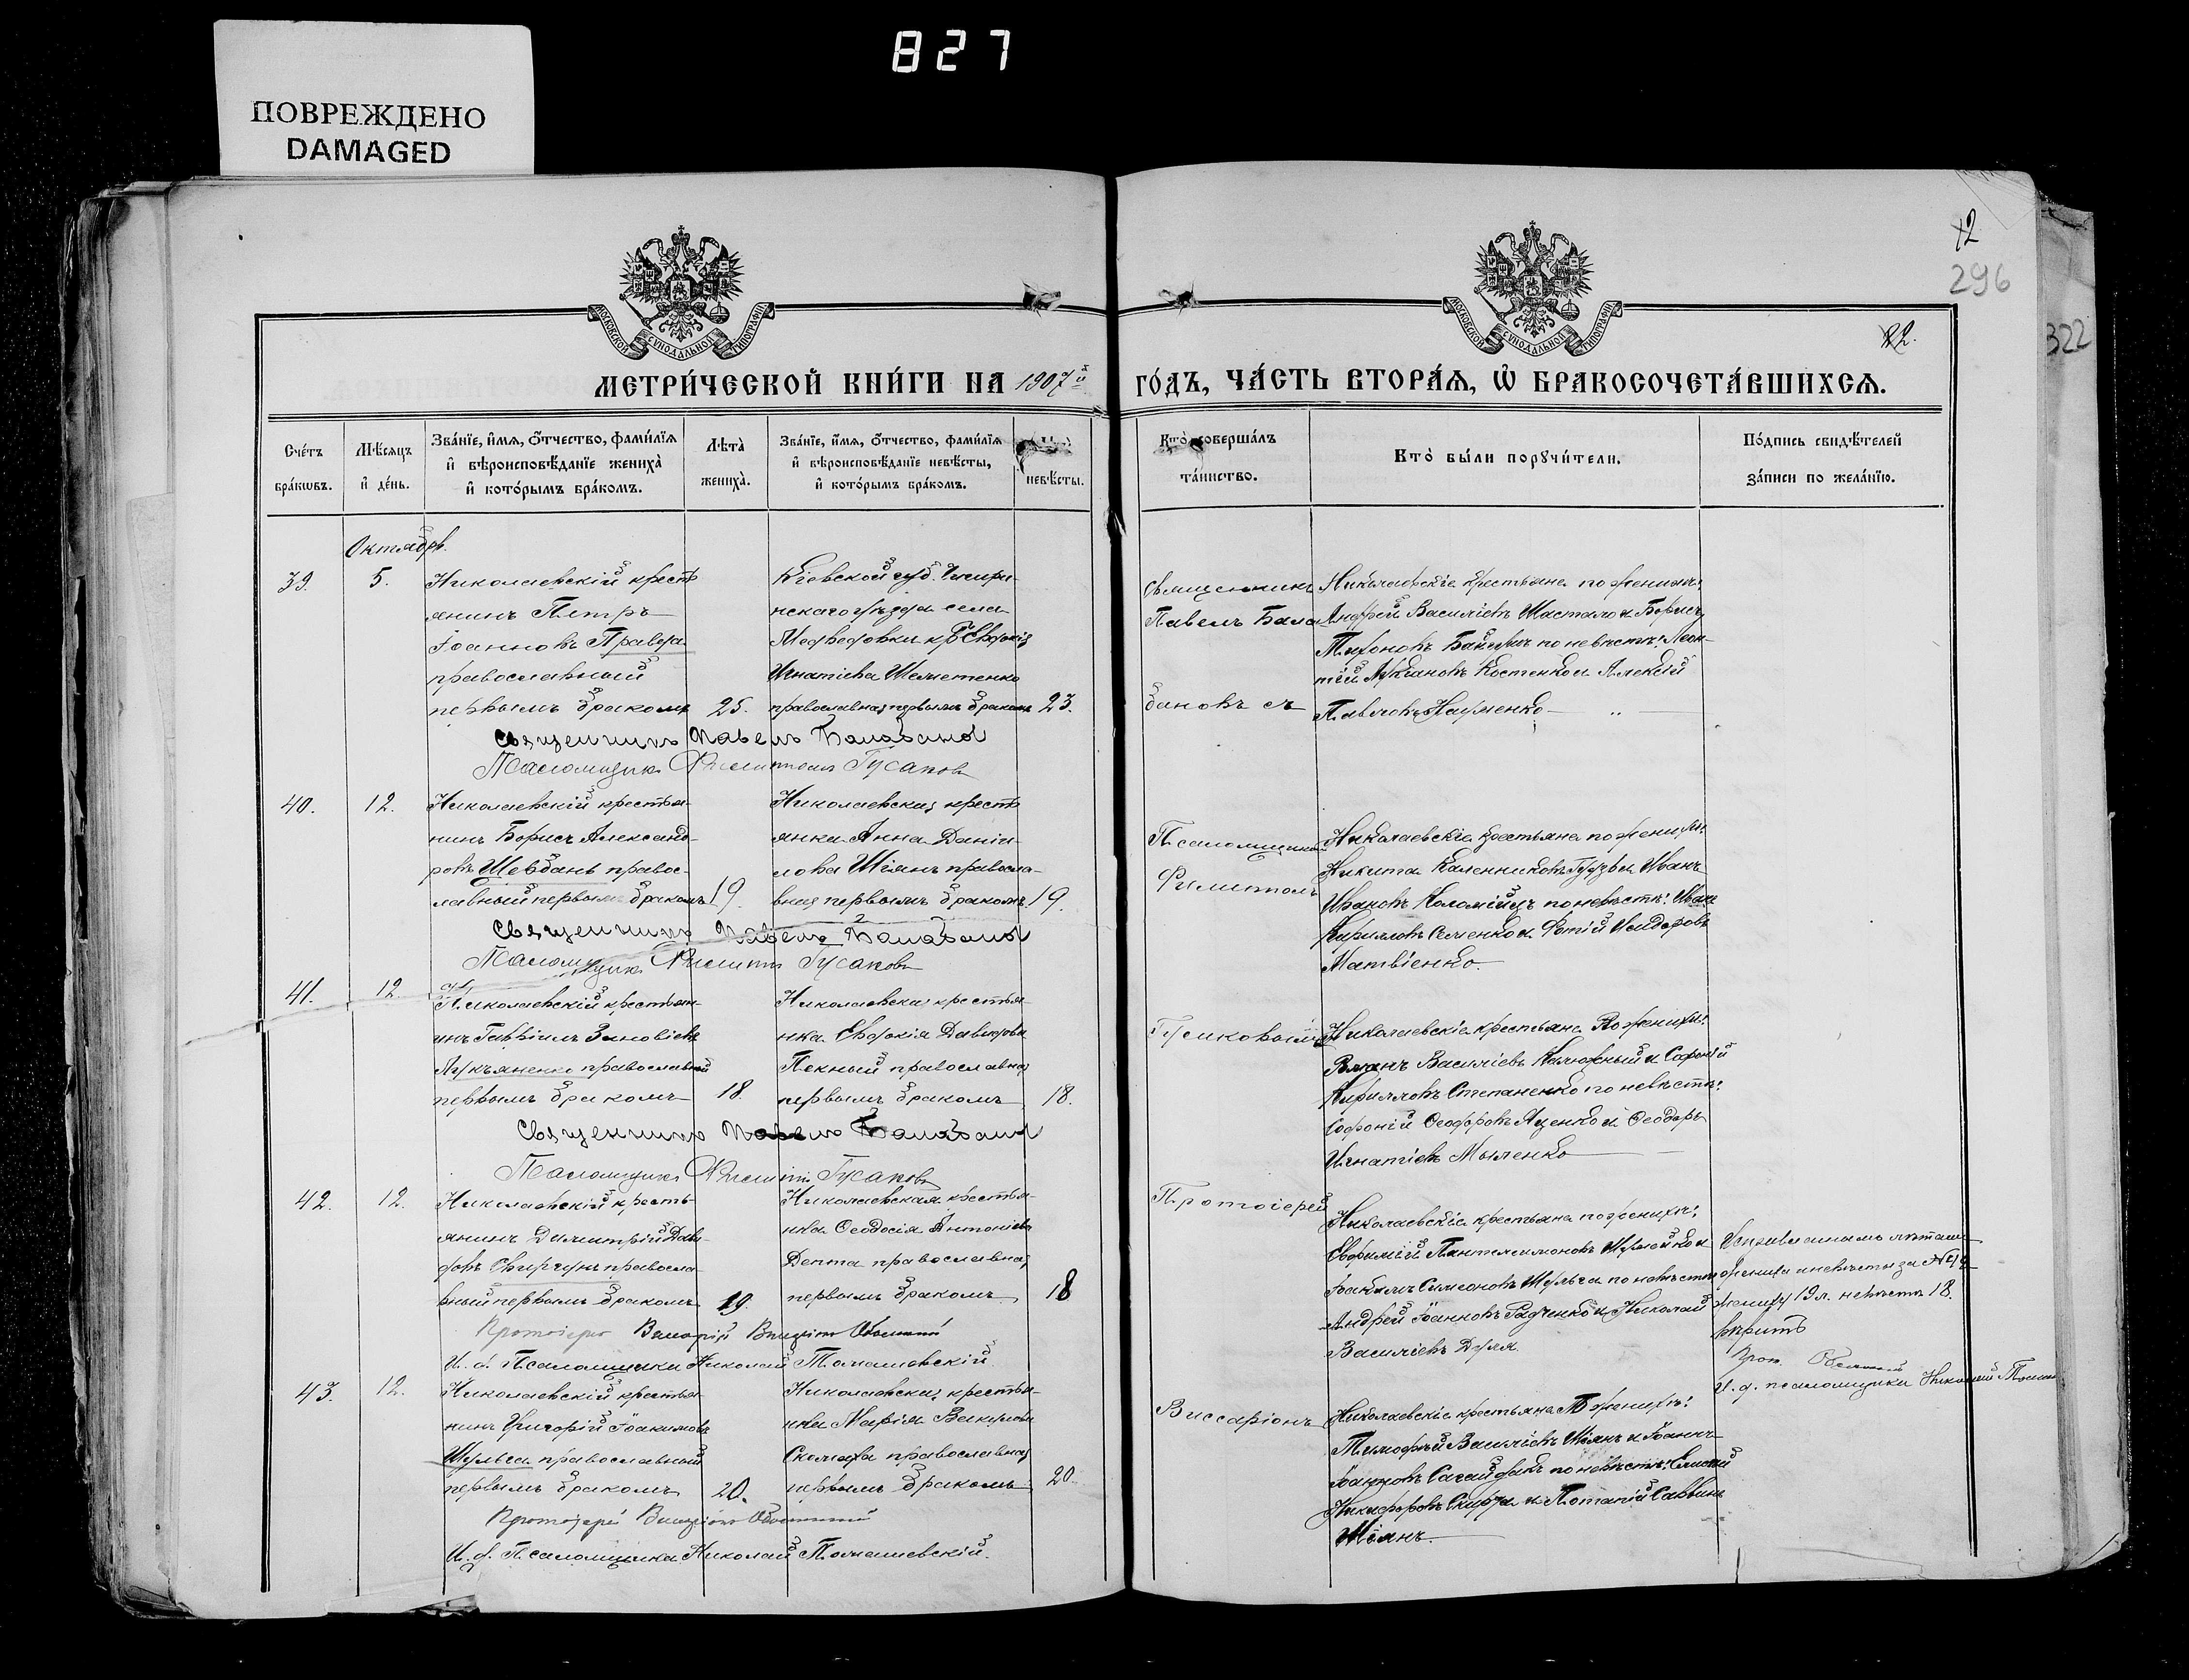 827
ПОВРЕЖДЕНО
DAMAGED
12
296
322
22.
МОСКОВСКОЙ СѴНОДАЛЬНОЙ ТИПОГРАФІИ
МОСКОВСКОЙ СѴНОДАЛЬНОЙ ТИПОГРАФІИ
МЕТРИ́ЧЕСКОЙ КНИ́ГИ НА 1907й
ГО́ДЪ, ЧА́СТЬ ВТОРА́Я, Ѡ҆ БРАКОСОЧЕТА́ВШИХСЯ.
Сче́тъ бра́кѡвъ.
Мѣ́сяцъ и҆ де́нь.
Зва́нїе, и҆́мя, ѻ҆́тчество, фами́лїя и҆ вѣроисповѣ́данїе жениха̀ и҆ кото́рымъ бра́комъ.
Лѣта̀ жениха̀.
Зва́нїе, и҆́мя, ѻ҆́тчество, фами́лїя и҆ вѣроисповѣ́данїе невѣ́сты, и҆ кото́рымъ бра́комъ.
невѣ́сты.
Кто̀ соверша́лъ та́инство.
Кто̀ бы́ли порꙋчи́тели.
По́дпись свидѣ́телей за́писи по жела́нїю.
Октябрь.
39.
5.
Николаевскій кресть
янинъ Петръ
Іоанновъ Правда
православный
первымъ бракомъ
25.
Кіевской губ. Чигри-
нскаго уѣзда села
Медведовки кр. Евдокія
Игнатіева Шеметенко
православная первымъ бракомъ
23.
Священникъ
Павелъ Бала
бановъ съ
Николаевскіе крестьяне по женихѣ:
Андрей Василіевъ Мастало и Борисъ
Тихоновъ по невѣстѣ: Леон-
тій Костенко и Алексій
Павловъ Науменко
Священникъ Павелъ Балабановъ
Псаломщикъ Филиппъ Гусаковъ
40.
12.
Николаевскій крестья-
нинъ Борисъ Александ-
ровъ Шевбанъ правос-
лавный первымъ бракомъ
19.
Николаевская кресть
янка Анна Даніи-
лова Шіянъ правосла-
вная первымъ бракомъ.
19.
Псаломщикомъ
Филиппомъ
Николаевскіе крестьяне по женихѣ:
Никита Калениковъ Гудзь и Иванъ
Ивановъ Коломійцъ по невѣстѣ: Иванъ
Кирилловъ Семенко и Фотій Исидоровъ
Матвіенко.
Священникъ Павелъ Балабановъ
Псаломщикъ Филиппъ Гусаковъ
41.
12.
Николаевскій крестьян-
инъ Гавріилъ Зиновіевъ
Лукьяненко православный
первымъ бракомъ
18.
Николаевская крестья
нка Евдокія Давидова
Пекный православная
первымъ бракомъ
18.
Гусаковымъ
Николаевскіе крестьяне по женихѣ:
Василіевъ Калюжный и Софоній
Кирилловъ Степаненко по невѣстѣ:
Софоній Ѳеодоровъ Яценко и Ѳеодоръ
Игнатіевъ Мыленко
Священникъ Павелъ Балабановъ
Псаломщикъ Филиппъ Гусаковъ
42.
12.
Николаевскій кресть-
янинъ Димитрій Дави-
довъ Свирчунъ правосла-
вный первымъ бракомъ
19.
Николаевская крестья-
нка Ѳеодосія Антоніева
Депта православная
первымъ бракомъ
18
Протоіерей
Николаевскіе крестьяне по женихѣ:
Евфимій Пантелеимоновъ и
Іоакимъ Симеоновъ Шульга по невѣстѣ
Андрей Іоанновъ Радченко и Николай
Василіевъ Дуля
жениха и невѣсты за №42
жениху 19 л. невѣстѣ 18.
вѣрить
Прот.
И. д. псаломщика Николай
Протоіерей Виссаріонъ
И. д. Псаломщика Николай Томашевскій
43.
12.
Николаевскій крестья-
нинъ Григорій Іоакимовъ
Шульга православный
первымъ бракомъ
20.
Николаевская крестья-
нка Марія
православная
первымъ бракомъ
20
Виссаріонъ
Николаевскіе крестьяне по женихѣ:
Тимофѣй Василіевъ Шіянъ и Іоаннъ
Іоанновъ Сагайдакъ по невѣстѣ:
Никифоровъ и Потапій Саввинъ
Шіянъ.
Протоіерей Виссаріонъ
И. д. Псаломщика Николай Томашевскій.